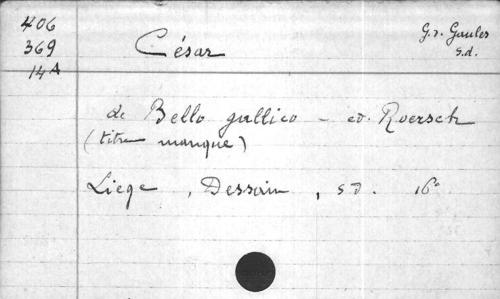 406
369
14A
César
G. d. Gaules
s.d.
de Bello gallico - ed. Roersch
(titre manque)
Liège, Dessain, s d. 16°